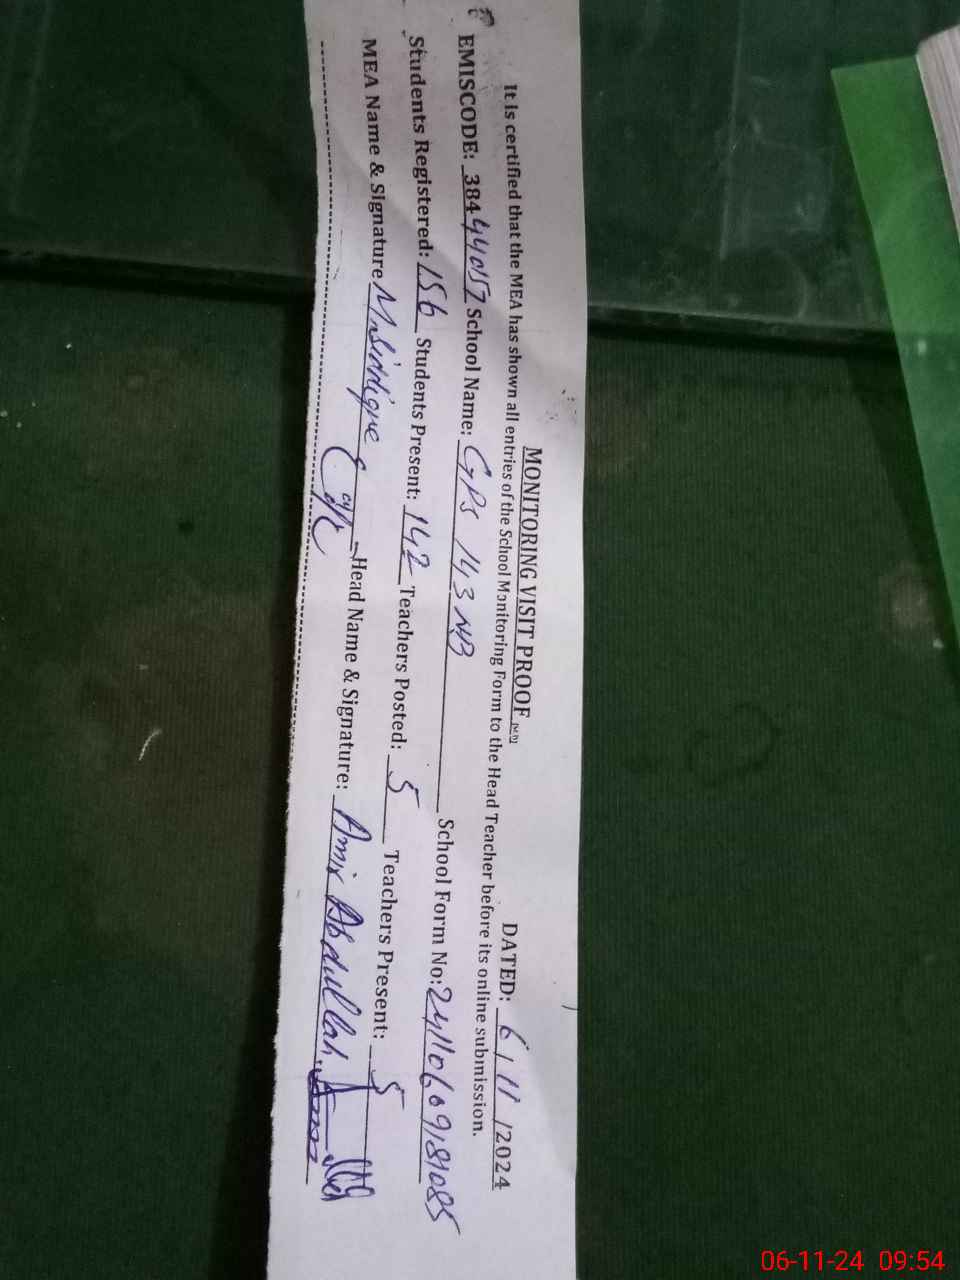 MONITORING VISIT PROOF
DATED: 6/11/2024
It is certified that the MEA has shown all entries of the School Monitoring Form to the Head Teacher before its online submission.
EMISCODE: 38444057 School Name: GPS 143 NB School Form No: 2411060918085
Students Registered: 156 Students Present: 142 Teachers Posted: 5 Teachers Present: 5
MEA Name & Signature M. Siddique Head Name & Signature: Amir Abdullah
06-11-24 09:54